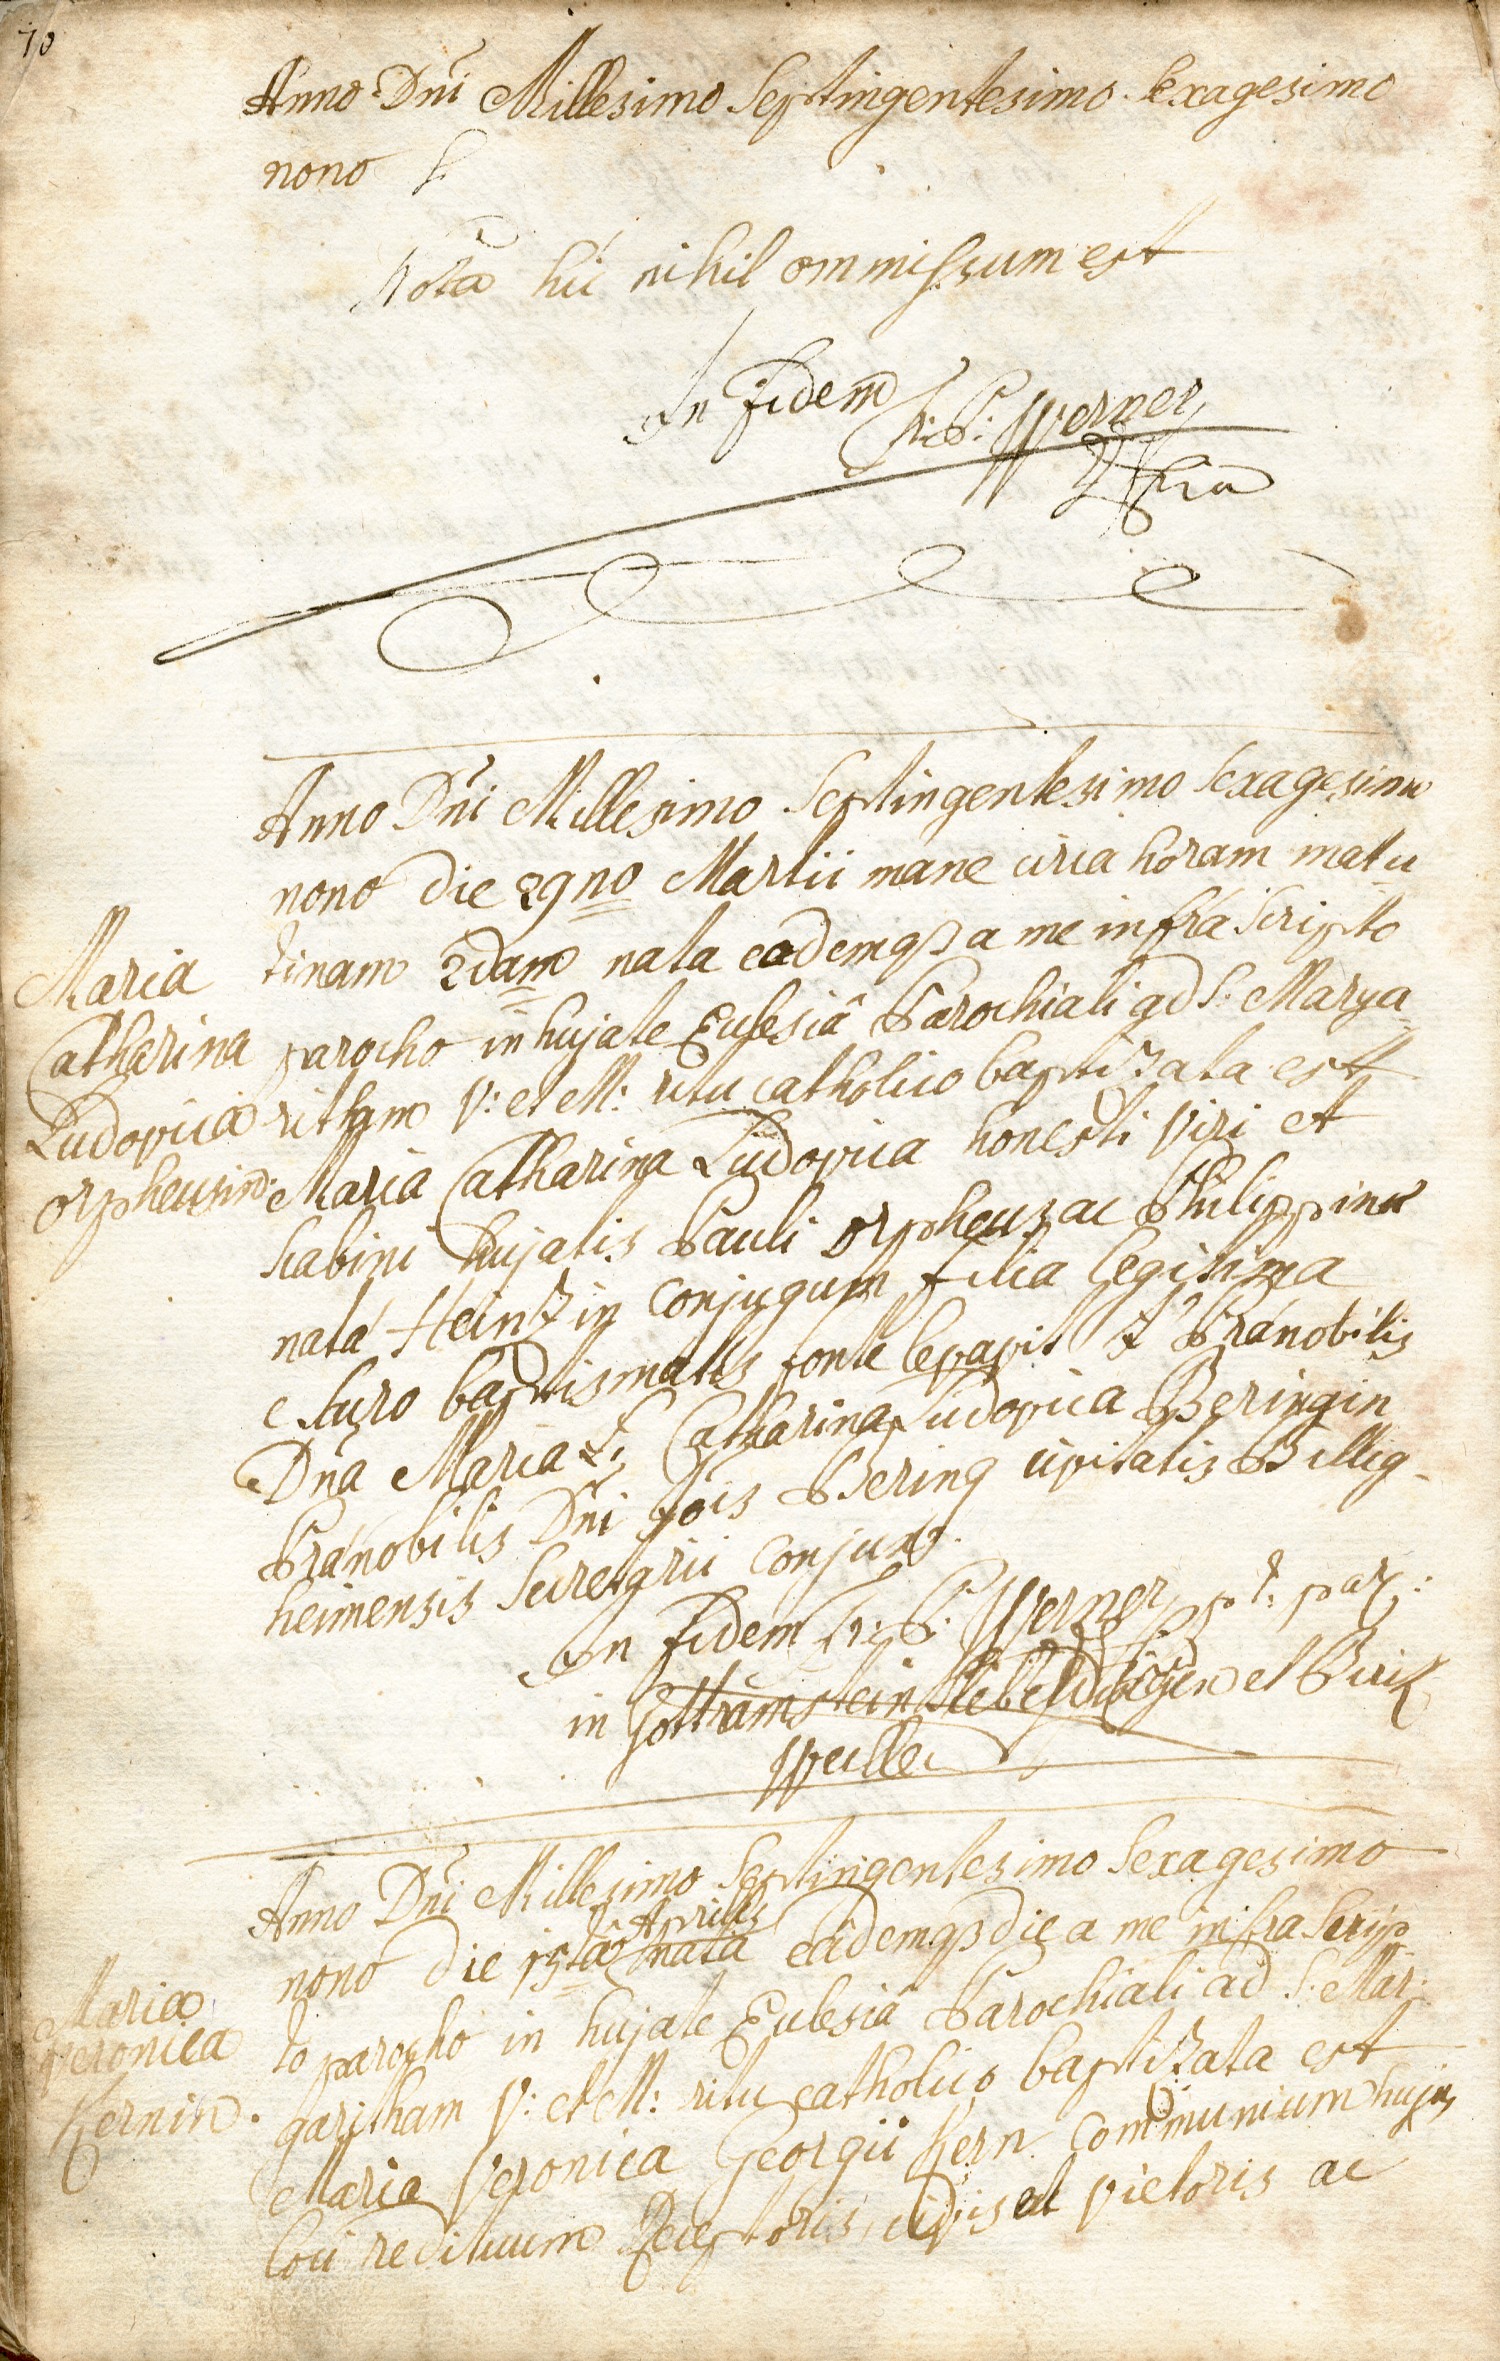 70
Anno Dni Millesimo Septingentesimo Sexagesimo
nono
Nota hic nihil ommissum est
In Fidem Werner
Anno Dni Millesimo Septingentesimo Sexagesimo
nono die 29no Martii mane circa horam matu
tinam 2dam nata eademqs a me infra Scripto
parocho in hujate Eclesiâ Parochiali ad S: Marga
ritham V: et M: ritu catholico baptizata est
Maria Catharina Ludovica honesti viri et
Scabini hujatis Pauli Orpheus ac Philippina
nata Heintzin conjugum filia legitima
e Sacro baptismatis fonte levavit Pranobilis
Dna Maria Catharina Ludovica Beringin
Pranobilis Dni Jois Bering civitatis Billig-
heimensis Secretarii conjunx.
Maria
Catharina
Ludovica
Orpheusin:
In Fidem Werner p t. par:
in Gottramstein Siebeldingen et Birk
Weiller
Anno Dni Millesimo Septingentesimo Sexagesimo
nono die 15tâ Aprilis nata eâdemqs die a me infra Scrip
to parocho in hujate Eclesiâ Parochiali ad S: Mar-
garitham V: et M: ritu catholico baptizata est
Maria Veronica Georgii Kern communium hujus
loci redituum Receptoris, civis et vietoris ac
Maria
Veronica
Kernin.